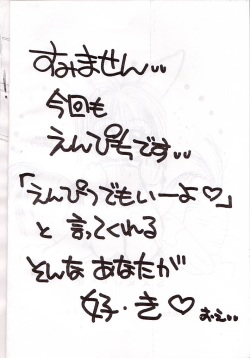 すみません､､
今回も
えんぴつです､､
「えんぴつでもいーよ♡」
と言ってくれる
そんなあなたが
好・き♡
おえ､､